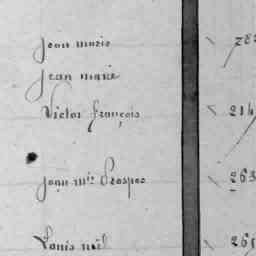 Jean marie
Jean marie
Victor françois 214
Jean m.ie Prosper 263
Louis noël 261